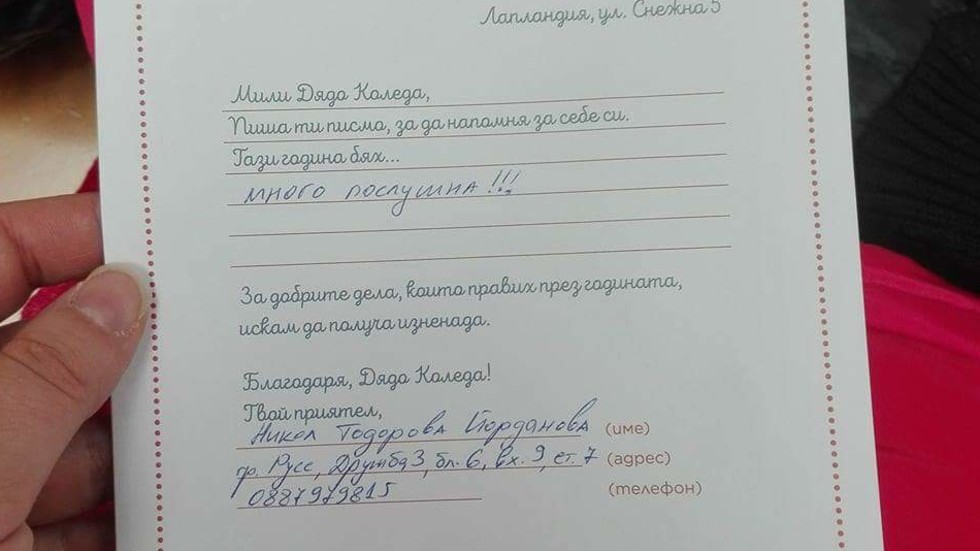 Лапландия, ул. Снежна 5
Мили Дядо Коледа,
Пиша ти писмо, за да напомня за себе си.
Тази година бях...
много послушна!!!
За добрите дела, които правих през годината,
искам да получа изненада.
Благодаря, Дядо Коледа!
Твой приятел,
Никол Тодорова Йорданова (име)
гр. Русе, Дружба 3, бл. 6, вх. 9, ет. 7 (адрес)
0887979815 (телефон)